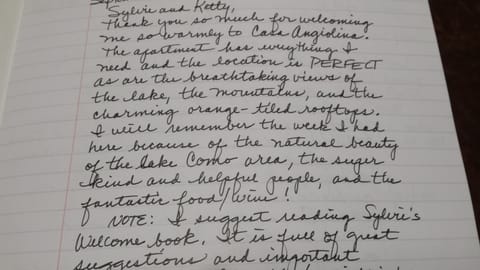 Sylvie and Ketty,
Thank you so much for welcoming
me so warmley to Casa Angiolina.
The apartment has everything I
need and the location is PERFECT
as are the breathtaking views of
the lake, the mountains, and the
charming orange-tiled rooftops.
I will remember the week I had
here because of the natural beauty
of the Lake Como area, the super
kind and helpful people, and the
fantastic food/wine!
NOTE: I suggest reading Sylvie's
Welcome book. It is full of great
suggestions and important